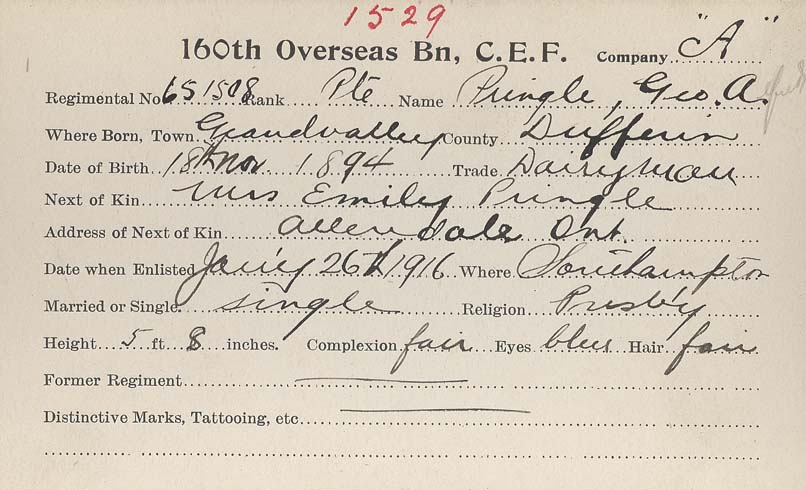 1529
160th Overseas Bn, C.E.F. Company "A"
Regimental No. 651508 Rank Pte Name Pringle, Geo. A.
Where Born, Town Grandvalley County Dufferin
Date of Birth 18th Nov 1894 Trade Dairyman
Next of Kin Mrs Emily Pringle
Address of Next of Kin Allendale Ont.
Date when Enlisted Jan'y 26th 1916 Where Southampton
Married or Single. single Religion Presby
Height 5 ft 8 inches. Complexion fair Eyes blue Hair fair
Former Regiment
Distinctive Marks, Tattooing, etc